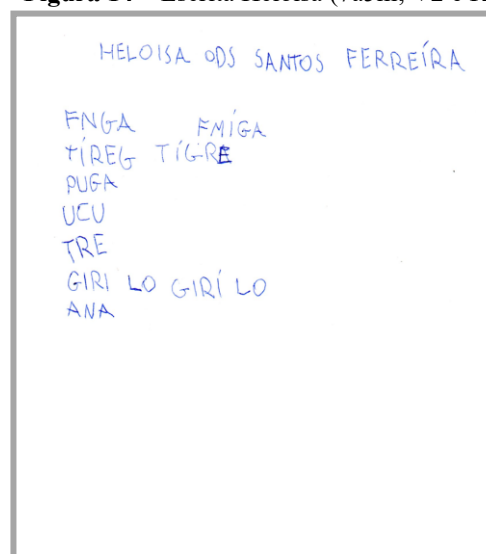 HELOISA ODS SANTOS FERREÍRA
FNGA FMÍGA
TÍREG TÍGRE
PUGA
UCU
TRE
GIRI LO GIRÍ LO
ANA